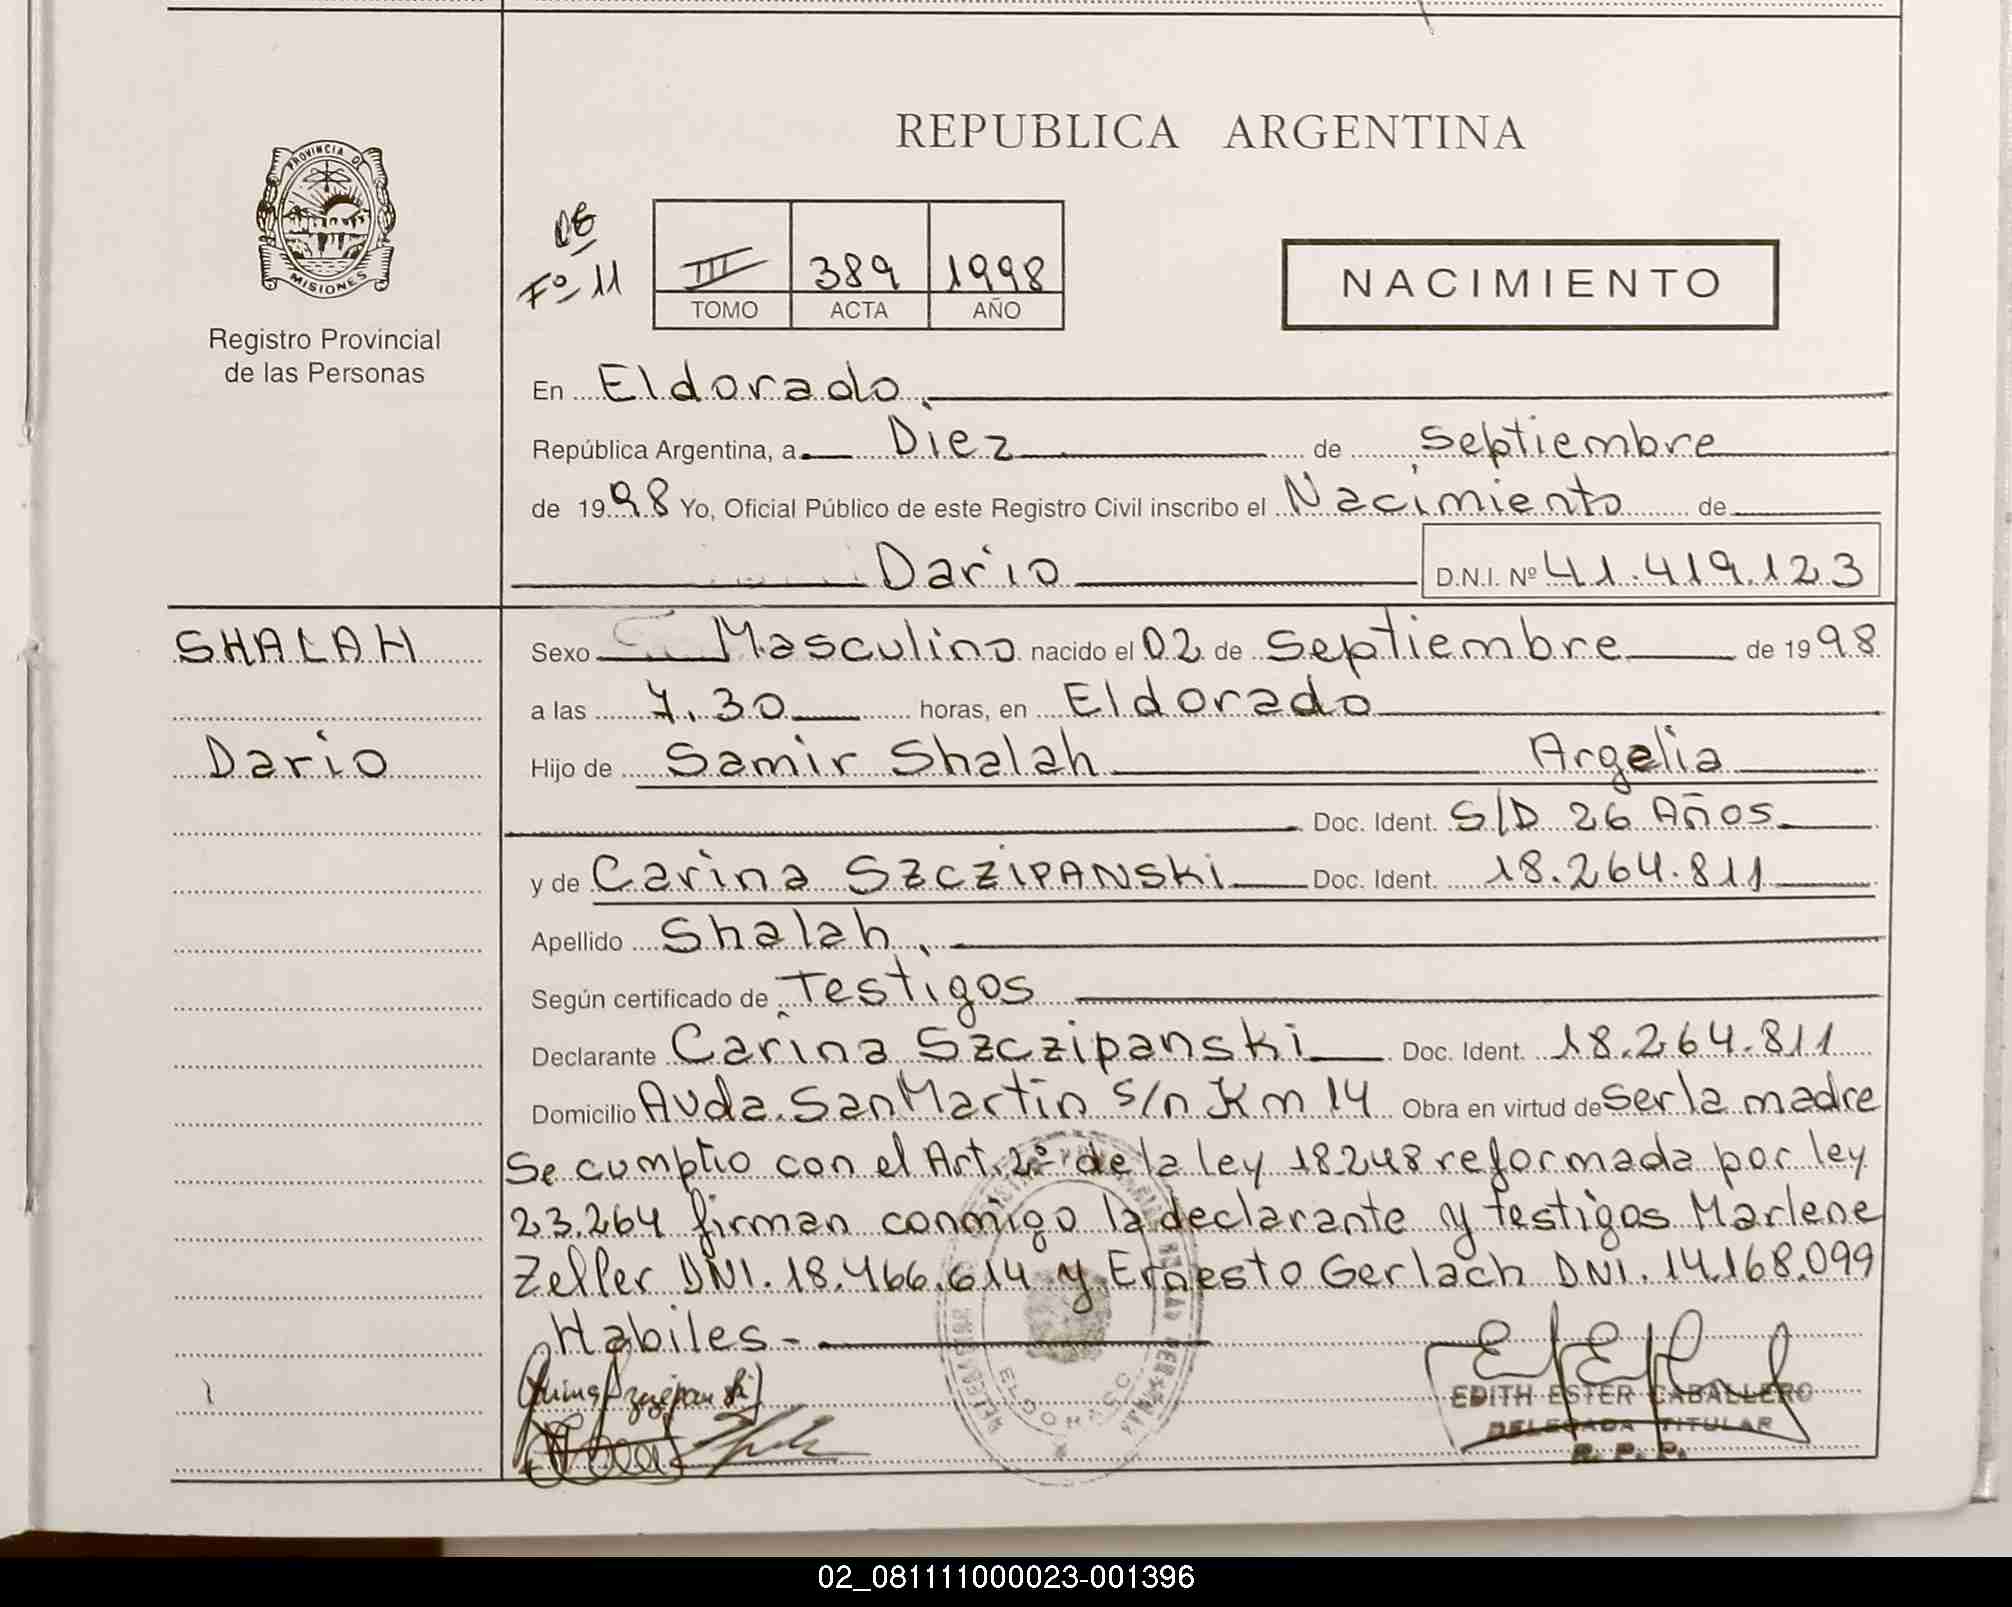 REPUBLICA ARGENTINA
PROVINCIA DE
MISIONES
Registro Provincial
de las Personas
Fº 11
III 389 1998
TOMO ACTA AÑO
NACIMIENTO
En Eldorado.
República Argentina, a Diez de septiembre
de 1998 Yo, Oficial Público de este Registro Civil inscribo el Nacimiento de
Dario D.N.I. Nº 41.419.123
SHALAH
Dario
Sexo Masculino nacido el 02 de Septiembre de 1998
a las 7.30 horas, en Eldorado
Hijo de Samir Shalah Argelia
Doc. Ident. S/D 26 Años
y de Carina SZCZIPANSKi Doc. Ident. 18.264.811
Apellido Shalah.
Según certificado de Testigos
Declarante Carina Szczipanski Doc. Ident. 18.264.811
Domicilio Avda. San Martin s/n Km 14 Obra en virtud de Ser la madre
Se cumplio con el Art. 2º de la ley 18248 reformada por ley
23.264 firman conmigo la declarante y testigos Marlene
Zeller DNI. 18.466.614 y Ernesto Gerlach DNI. 14.168.099
Habiles -
EDITH ESTER CABALLERO
DELEGADA TITULAR
R. P. P.
02_081111000023-001396